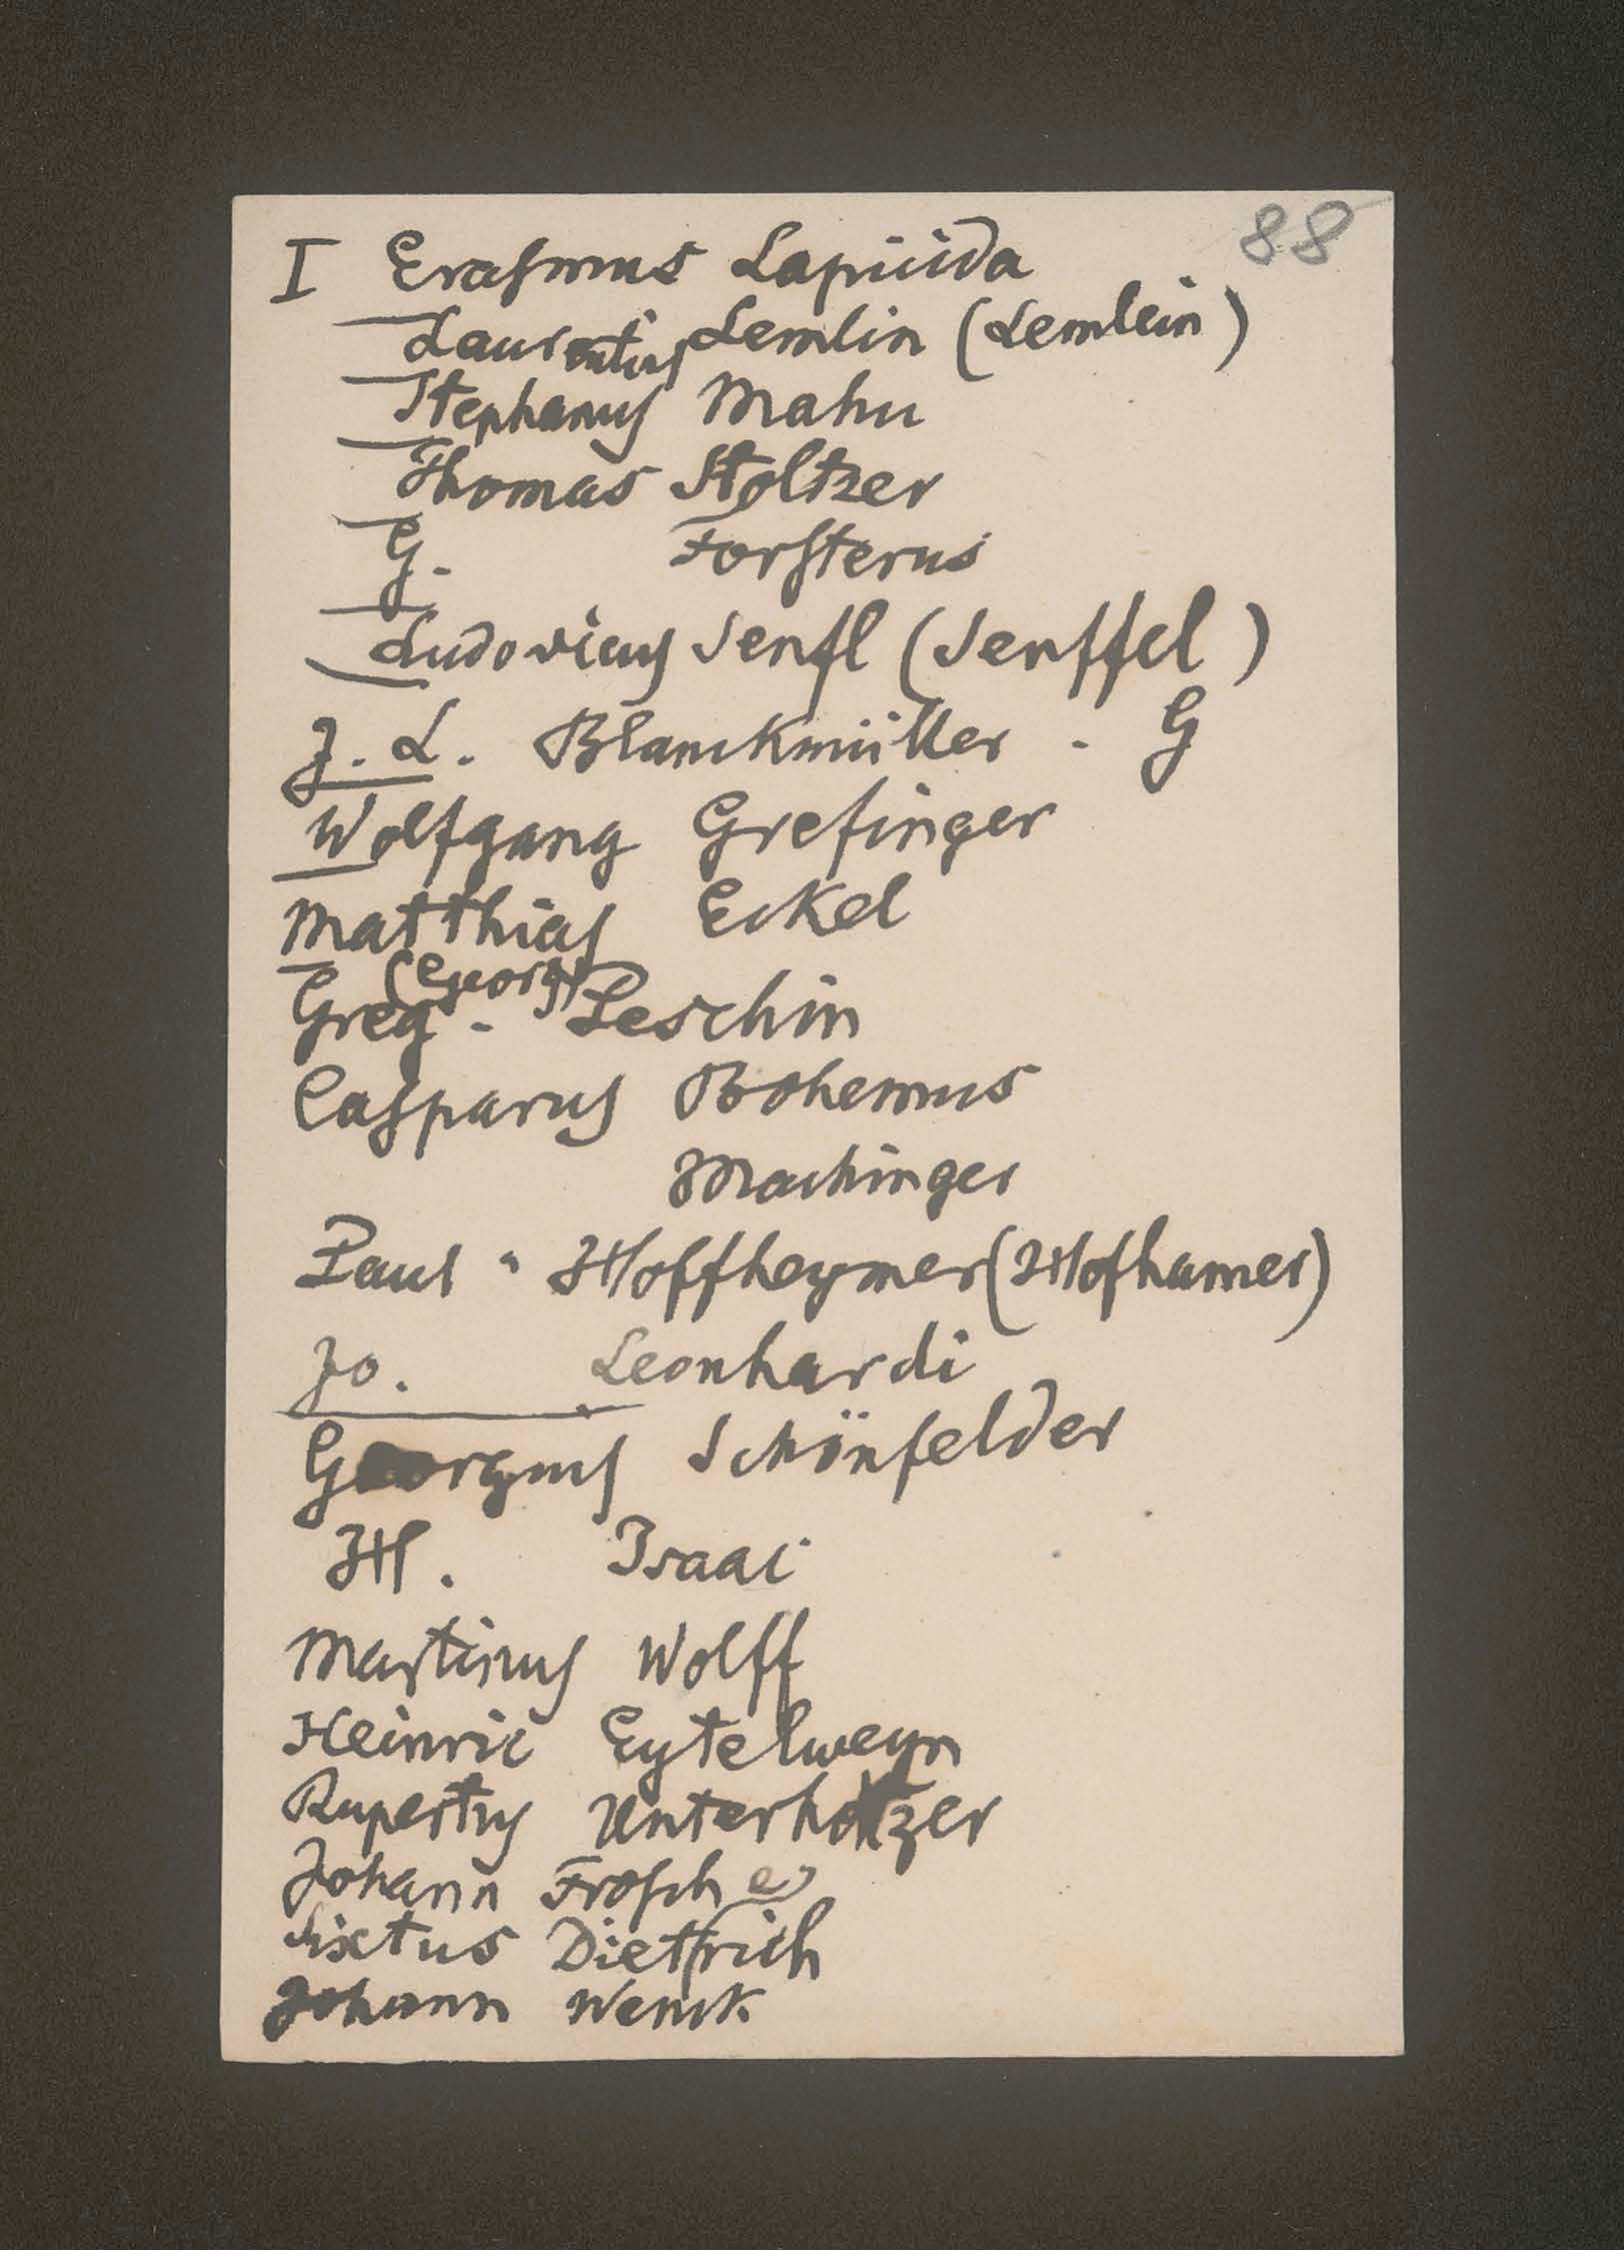 88
I Erasmus Lapicida
Laurentius Lemlin (Lemlein)
Stephanus Mahu
Thomas Stoltzer
G. Forsterus
Ludovicus Senfl (Senffel)
J. L. Blanckmüller . G
Wolfgang Grefinger
Matthias Eckel
(Georg)
Greg. Peschin
Casparus Bohemus
Machinger
Paul " Hoffheymer (Hofhamer)
Jo. Leonhardi
Georgius Schönfelder
H. Isaac
Martinus Wolff
Heinric Eytelweyn
Rupertus Unterholtzer
Johann Frosch
Sixtus Dietrich
Johann Wenck